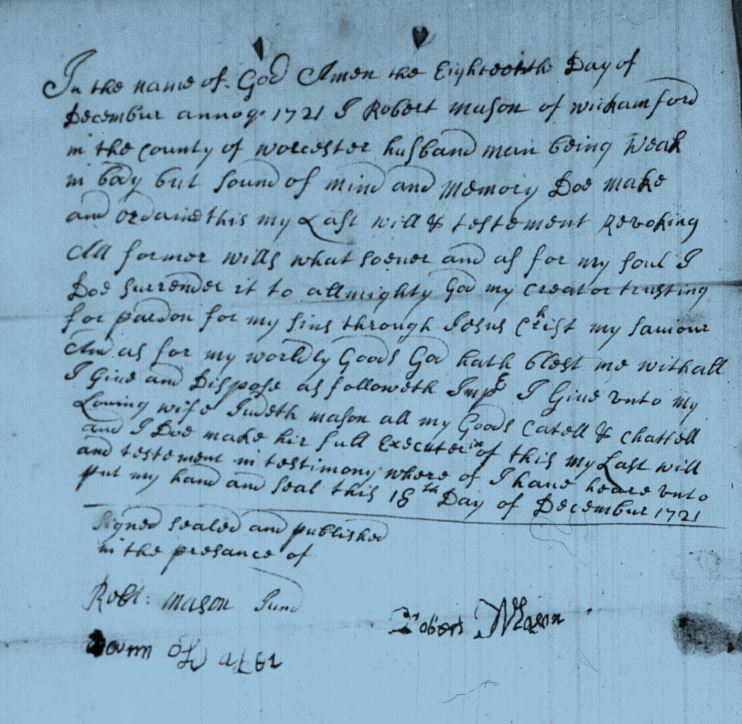 In the name of God Amen the Eighteenth Day of
December annoq. 1721 I Robert mason of wickamford
in the county of worcester husband man being weak
in body but sound of mind and memory Doe make
and ordaine this my Last will & testement Revoking
All former wills what soever and as for my soul I
Doe surrender it to allmighty God my creator trusting
for pardon for my sins through Jesus Christ my saviour
And as for my worldly Goods God hath blest me withall
I Give and Dispose as followeth Impr I Give unto my
Loving wife Judeth mason all my Goods Catell & Chattell
and I Doe make her full Executerix of this my Last will
and testement in testimony where of I have heare unto
put my hand and seal this 18th Day of December 1721
Signed sealed and published
in the presance of
Robt: mason
Robert Mason